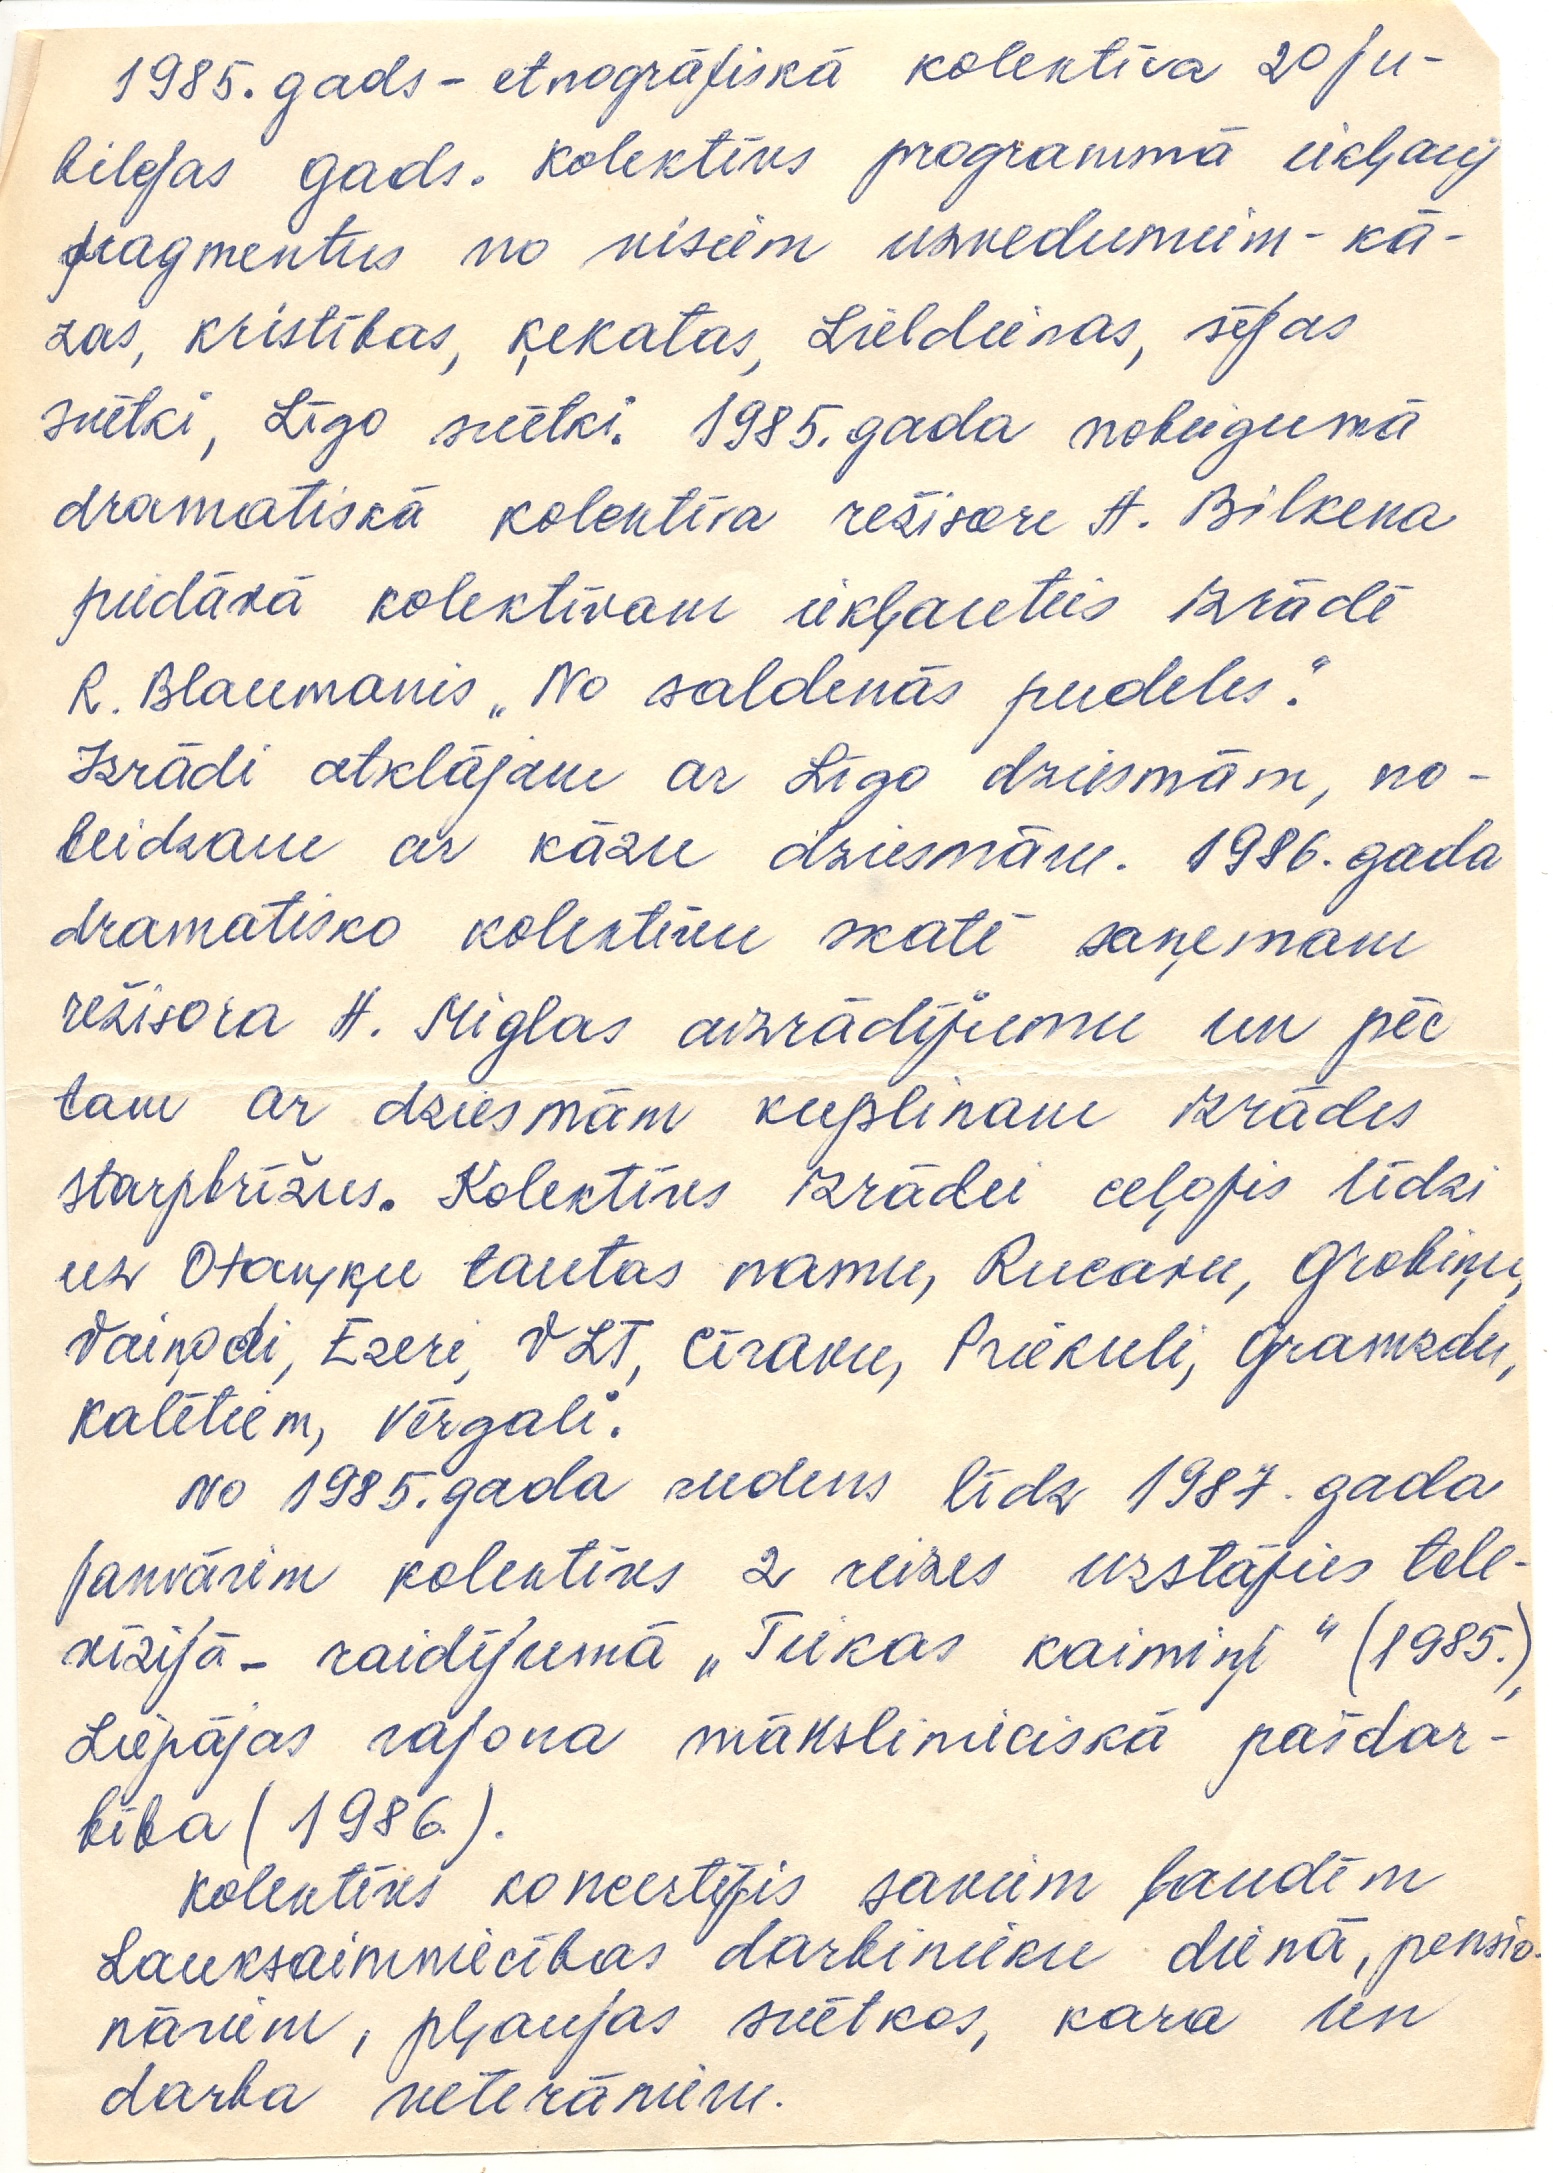 1985. gads - etnogrāfiskā kolektīva 20 ju-
bilejas gads. Kolektīvs programmā iekļauj
fragmentus no visiem uzvedumiem - kā-
zas, kristības, ķekatas, Lieldienas, sējas
svētki, Līgo svētki. 1985. gada nobeigumā
dramatiskā kolektīva režisore A. Bilkena
piedāvā kolektīvam iekļauties izrādē
R. Blaumanis „No saldenās pudeles".
Izrādi atklājam ar Līgo dziesmām, no-
beidzam ar kāzu dziesmām. 1986. gada
dramatisko kolektīvu skatē saņemam
režisora A. Miglas aizrādījumu un pēc
tam ar dziesmām kuplinam izrādes
starpbrīžus. Kolektīvs izrādei ceļojis līdzi
uz Otaņķu tautas namu, Rucavu, Grobiņu,
Vaiņodi, Ezeri, VLT, Cīravu, Priekuli, Gramzdu,
Kalētiem, Vērgali.
No 1985. gada rudens līdz 1987. gada
janvārim kolektīvs 2 reizes uzstājies tele-
vīzijā - raidījumā „Tiekas kaimiņi" (1985.),
Liepājas rajona mākslinieciskā pašdar-
bība (1986.).
Kolektīvs koncertējis saviem ļaudīm
Lauksaimniecības darbinieku dienā, pensio-
nāriem, pļaujas svētkos, kara un
darba veterāniem.